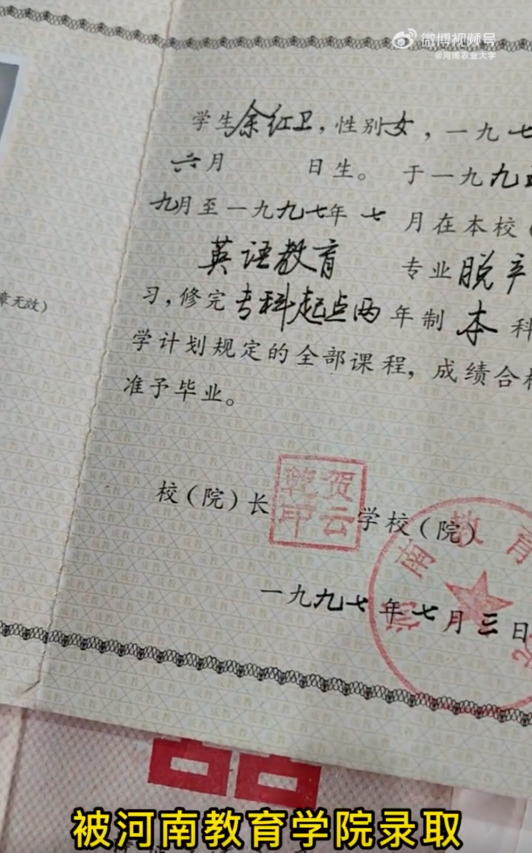 微博视频号
@河南农业大学
学生余红卫，性别女，一九七
六月 日生。于一九九
九月至一九九七年七月在本校（
英语教育 专业脱产
习，修完专科起点两年制本科
学计划规定的全部课程，成绩合格
准予毕业。
章无效）
校（院）长
贺云
印
学校（院）
河南教育
一九九七年七月三日
被河南教育学院录取